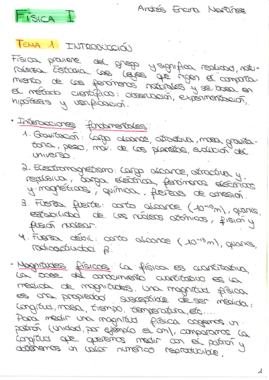 Andrés Encina Martínez
FÍSICA I
TEMA 1 INTRODUCCIÓN
Física proviene del griego y significa realidad, natu-
raleza. Estudia las leyes que rigen el comporta-
miento de los fenómenos naturales y se basa en
el método científico: observación, experimentación,
hipótesis y verificación.
· Interacciones fundamentales:
1. Gravitación: largo alcance, atractiva, masa, gravita-
toria, peso, mov. de los planetas, evolución del
universo.
2. Electromagnetismo: largo alcance, atractiva y
repulsiva, carga eléctrica, fenómenos eléctricos
y magnéticos, química, fuerzas de cohesión.
3. Fuerza fuerte: corto alcance (10⁻¹⁵m), quarks,
estabilidad de los núcleos atómicos, fisión y
fusión nuclear.
4. Fuerza débil: corto alcance (10⁻¹⁸m), quarks,
radioactividad β.
· Magnitudes físicas: la física es cuantitativa,
la base del conocimiento cuantitativo es la
medida de magnitudes. Una magnitud física
es una propiedad susceptible de ser medida:
longitud, masa, tiempo, temperatura, etc....
Para medir una magnitud física cogemos un
patrón (unidad, por ejemplo el cm), comparamos la
longitud que queremos medir con el patrón y
obtenemos un valor numérico reproducible.